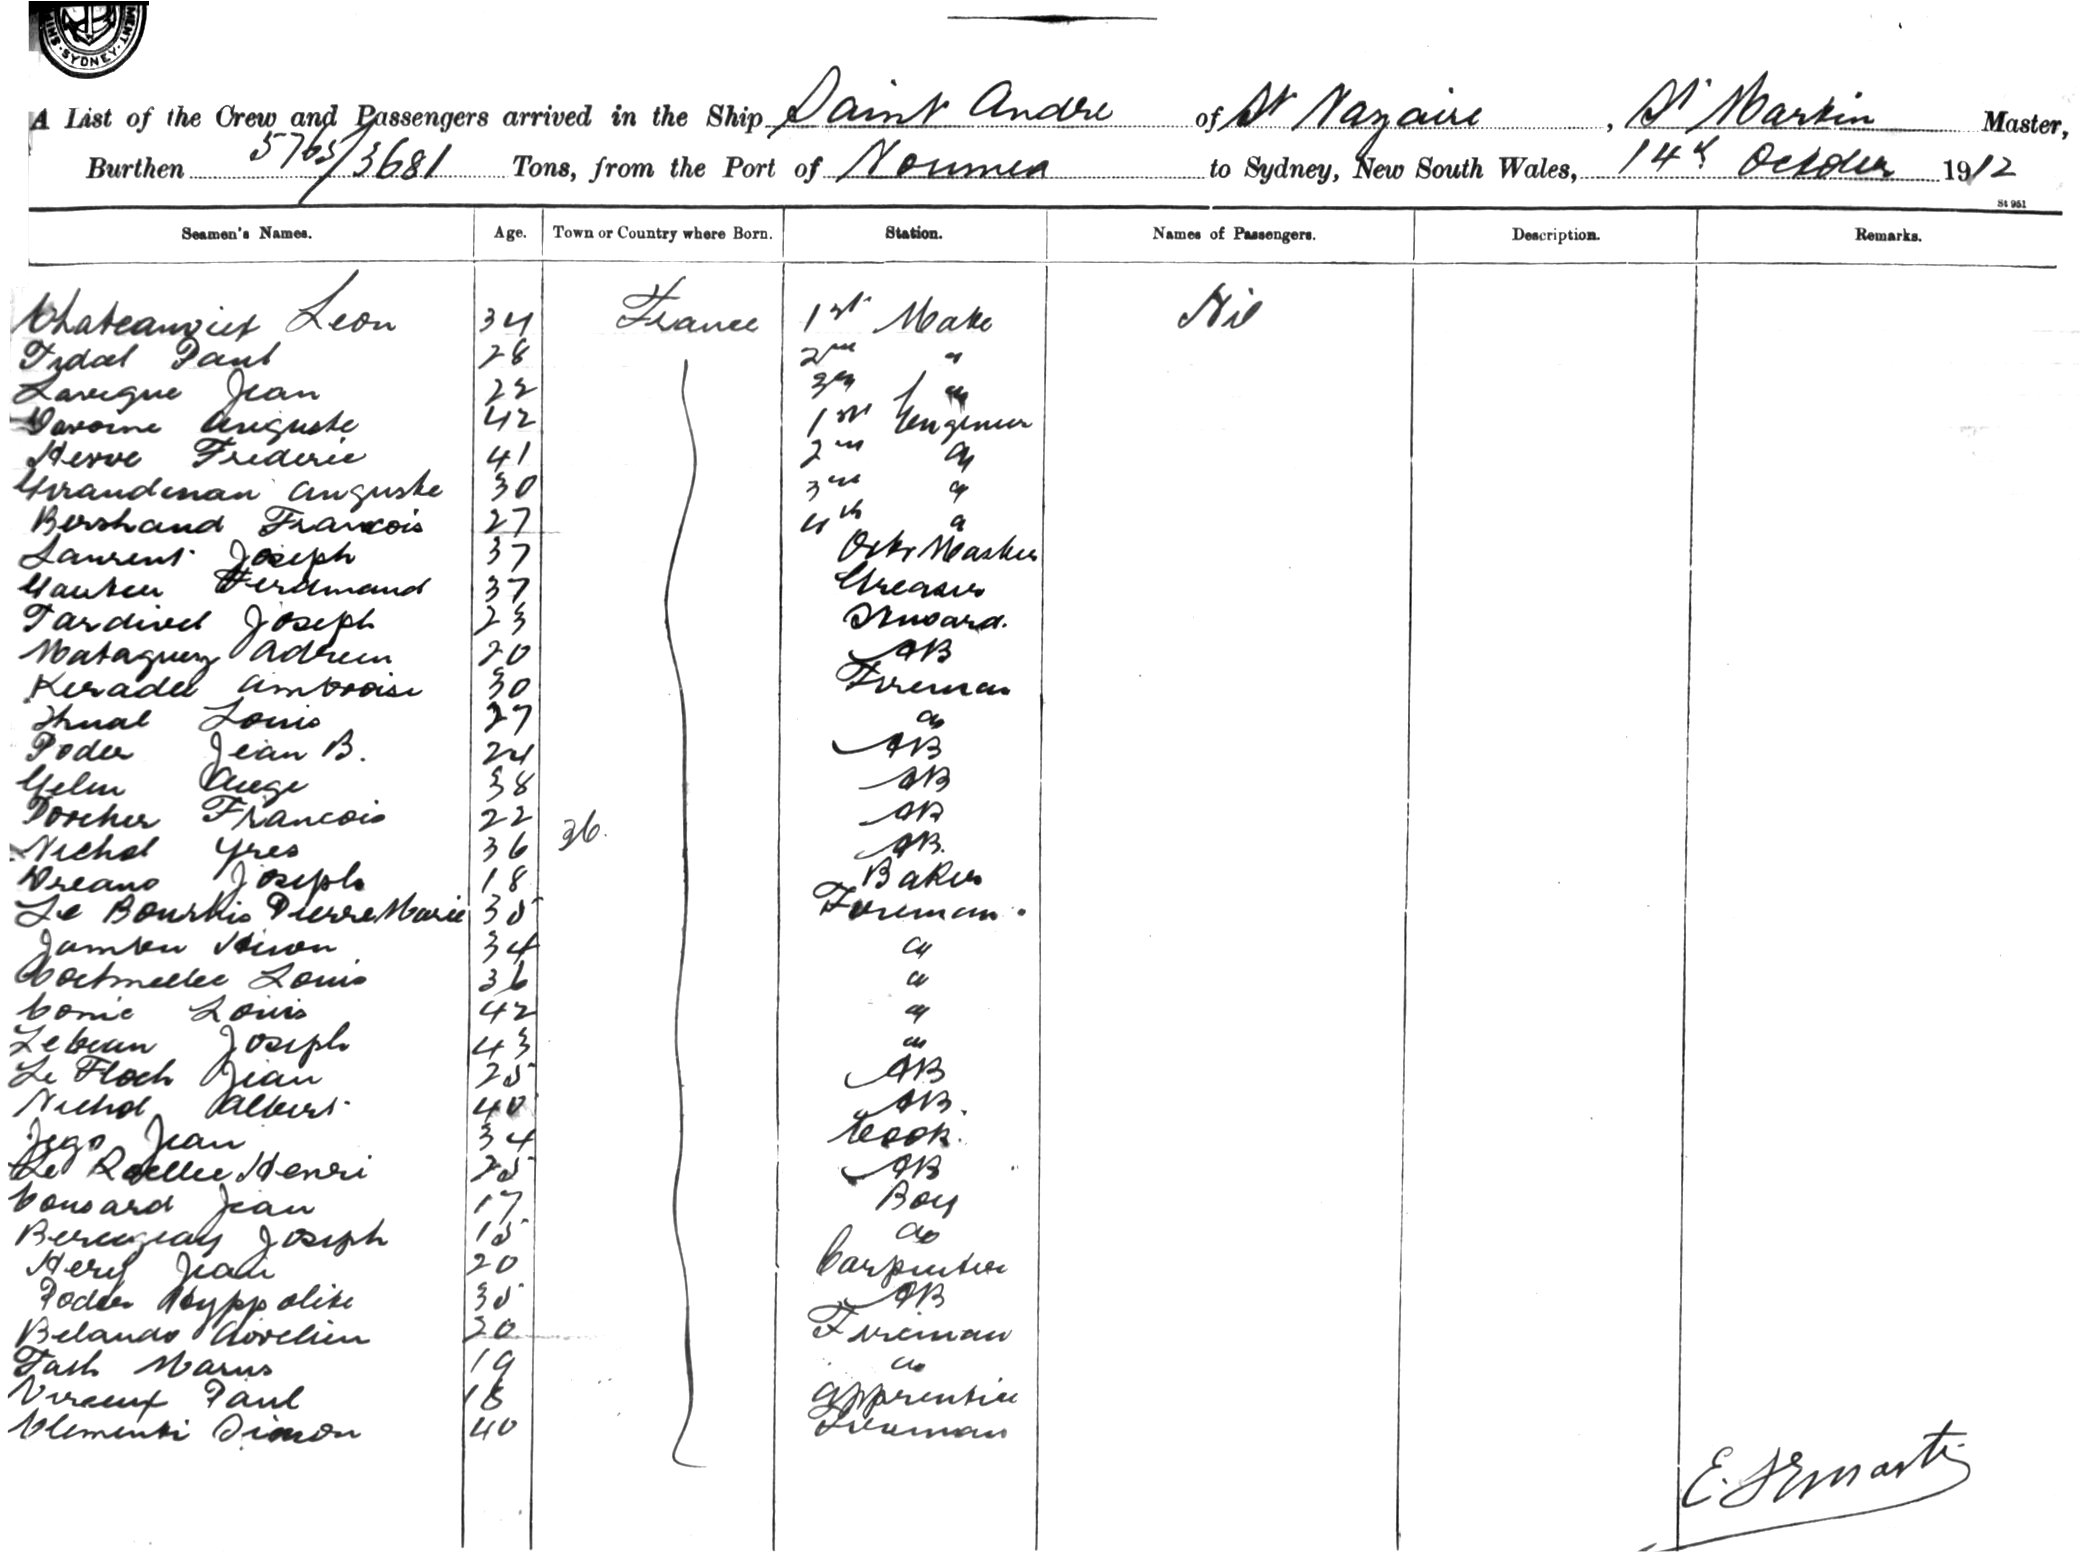 SYDNEY
A List of the Crew and Passengers arrived in the Ship Saint Andre of St Nazaire, St Martin Master,
Burthen 5763/3681 Tons, from the Port of Noumea to Sydney, New South Wales, 14th October 1912
St 951
Seamen's Names. Age. Town or Country where Born. Station. Names of Passengers. Description. Remarks.
Leon 34 France 1st Mate Nil
Paul 28 2nd "
Lavigne Jean 22 3rd "
Davoine Auguste 42 1st Engineer
Herve Frederic 41 2nd "
Auguste 30 3rd "
Bertrand Francois 27 4th "
Laurent Joseph 37 Master
Gautier Ferdinand 37 Greaser
Tardivel Joseph 23 Steward.
Adrien 20 AB
Ambroise 30 Fireman
Louis 27 "
Poder Jean B. 24 AB
38 AB
Porcher Francois 22 AB
Nichol Yves 36 36. AB.
Dreano Joseph 18 Baker
Le Bourhis Pierre Marie 35 Fireman.
34 "
Louis 36 "
Conic Louis 42 "
Joseph 43 "
Le Floch Jean 25 AB
Nichol Albert 40 AB.
Jego Jean 34 Cook.
Le Henri 25 AB
Jean 17 Boy
Joseph 15 do
Hery Jean 20 Carpenter
Poder Hyppolite 35 AB
Belando Aurelien 20 Fireman
19 do
Paul 18 Apprentice
Clementi Simon 40 Fireman
E. St Martin